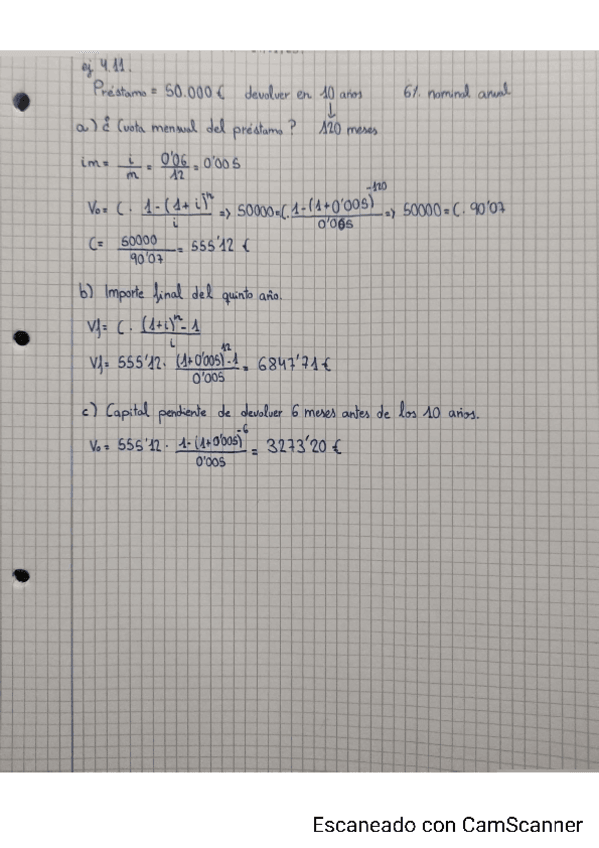 ej 4.11.
Préstamo = 50.000 € devolver en 10 años 6% nominal anual
↓
a) ¿ Cuota mensual del préstamo? 120 meses
im = i/m = 0'06/12 = 0'005
V₀ = C · (1-(1+i)^n)/i => 50000 = C · (1-(1+0'005)^-120)/0'005 => 50000 = C · 90'07
C = 50000/90'07 = 555'12 €
b) Importe final del quinto año.
Vf = C · ((1+i)^n - 1)/i
Vf = 555'12 · ((1+0'005)^12 - 1)/0'005 = 6847'71 €
c) Capital pendiente de devolver 6 meses antes de los 10 años.
V₀ = 555'12 · (1-(1+0'005)^-6)/0'005 = 3273'20 €
Escaneado con CamScanner